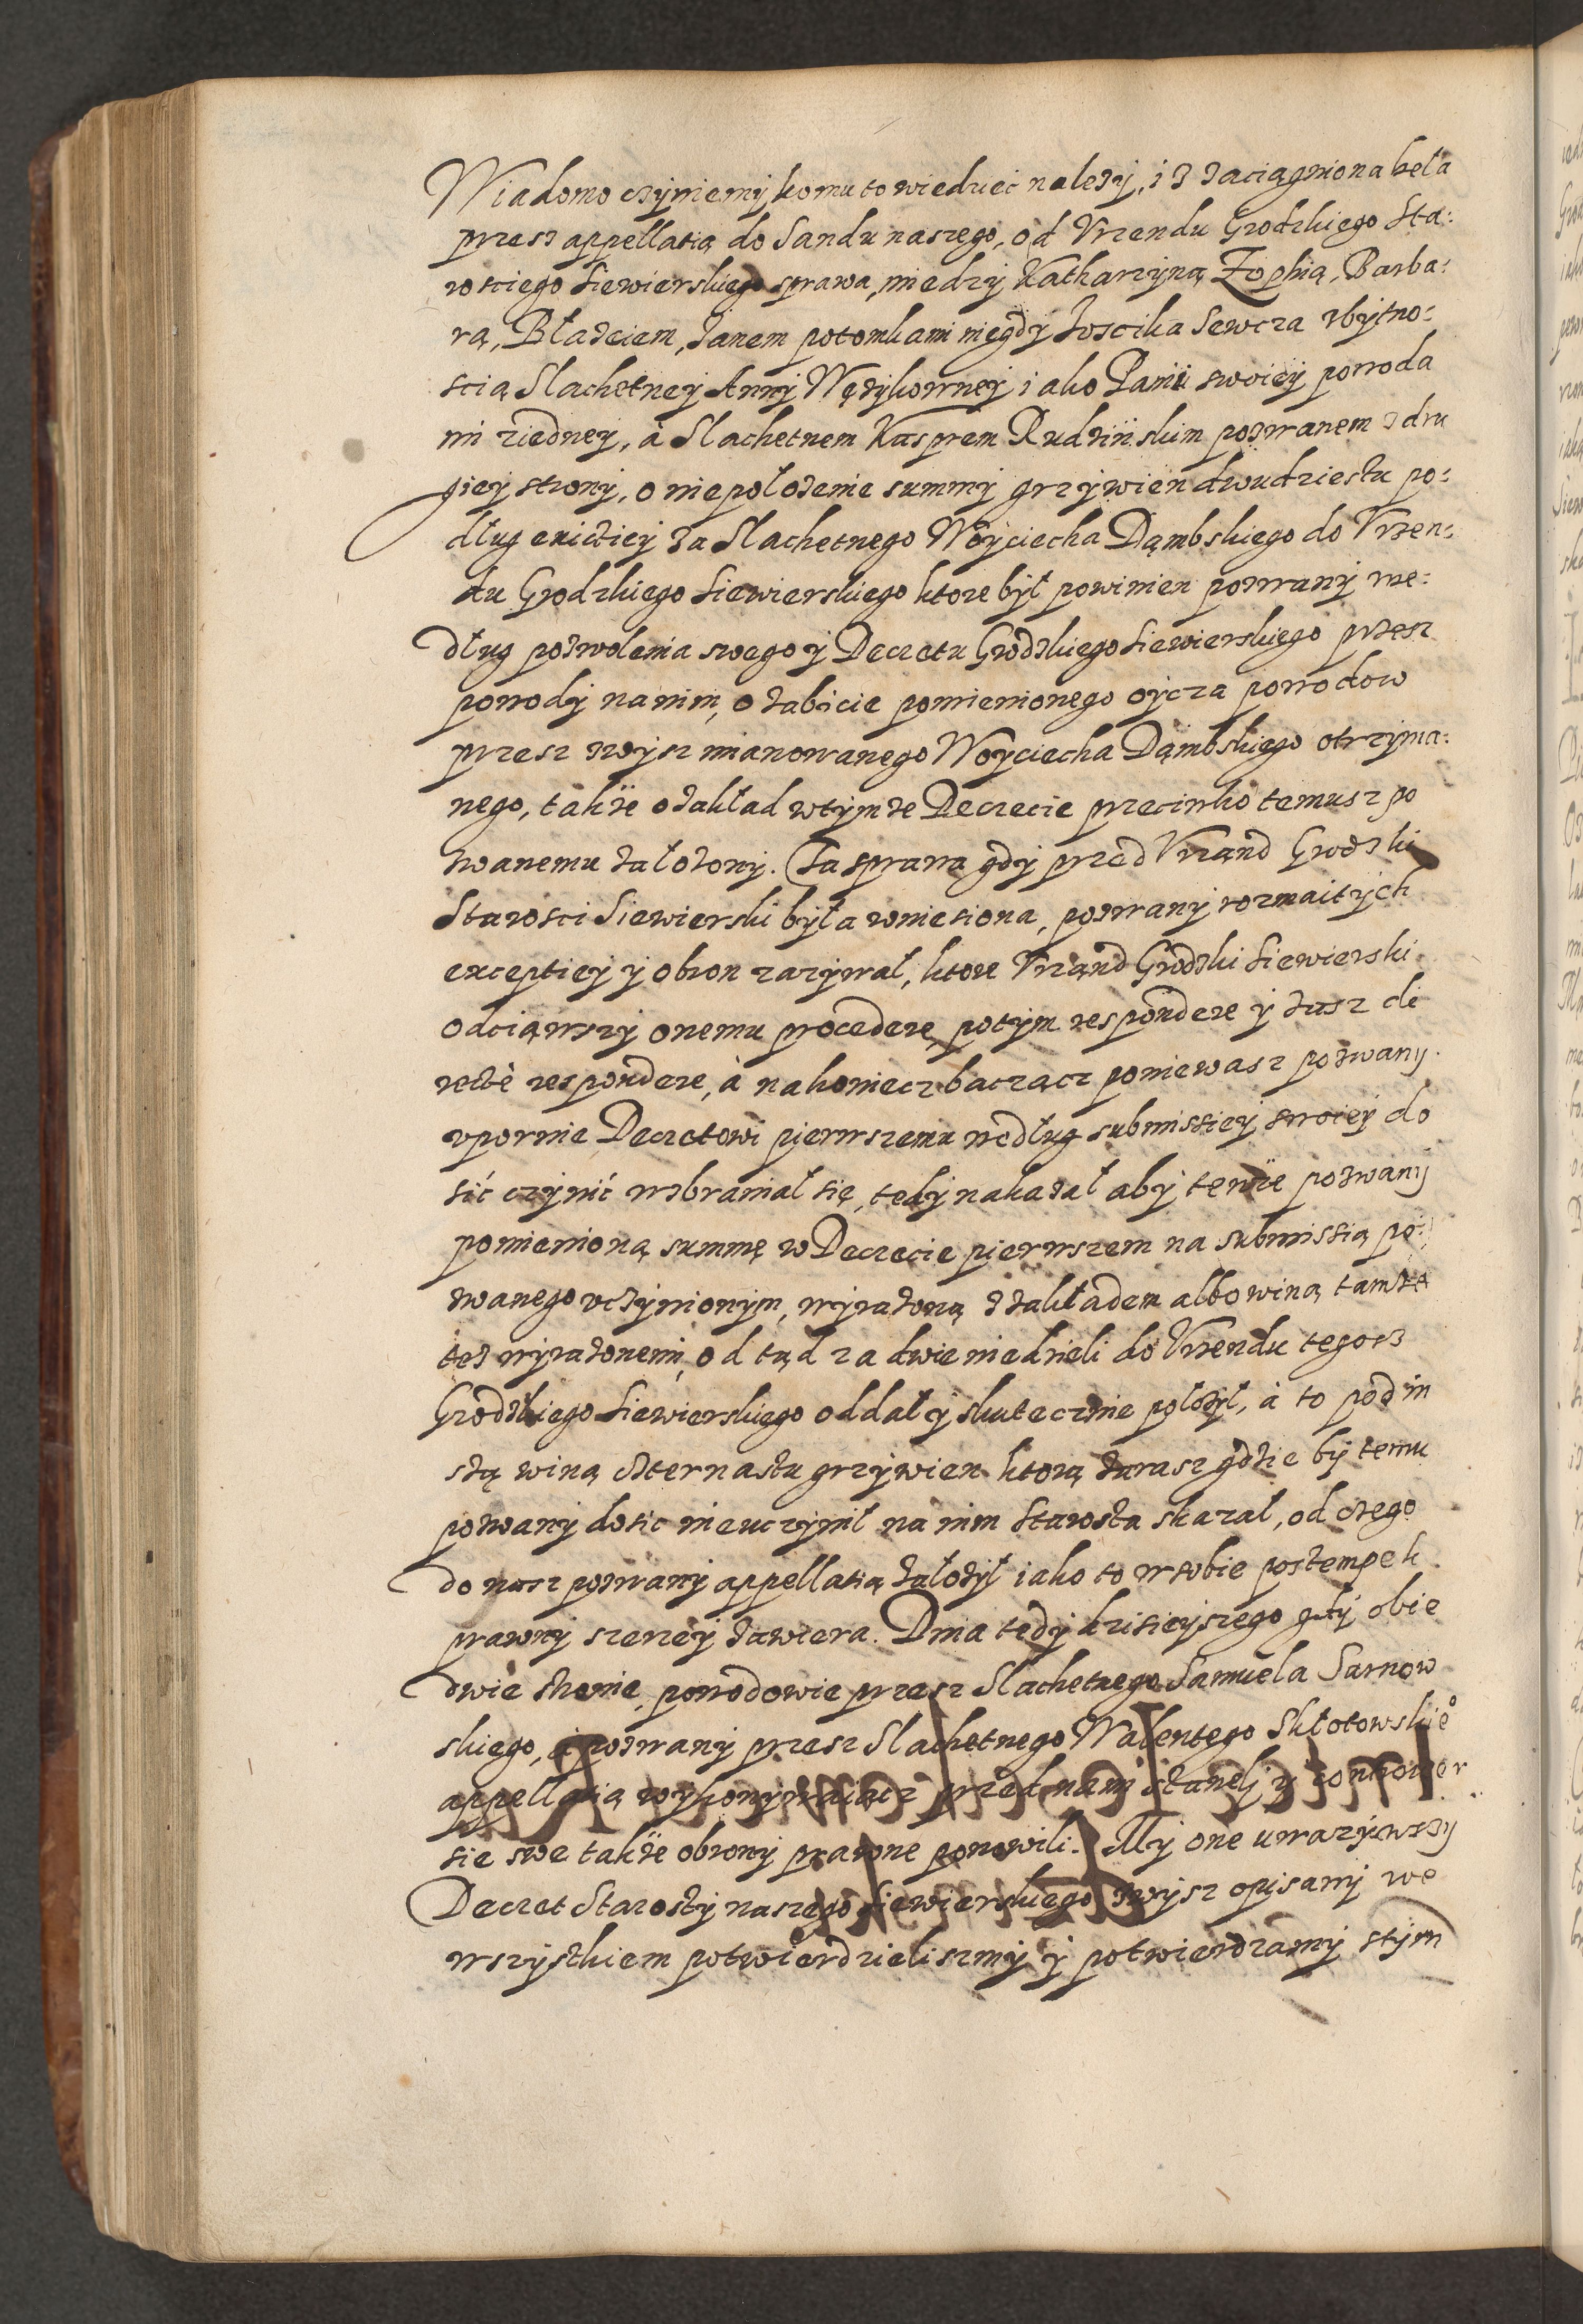 Wiadomo czyniemy komu to wiedzieć nalezy, iz zaciągniona beła
przesz appellatią do Sandu naszego, od Vrzendu Grodzkiego Sta:
rosciego Siewierskiego sprawa, miedzy Katharzyną Zophią, Barba:
rą, Błazeiem, Janem potomkami niegdy Joscika Sewcza zbytno:
scią Slachetney Anny Wężykowney iako Panii swoiey powoda
mi ziedney, à Slachetnem Kasprem Rudzinskim pozwanem z dru
giey strony, o niepołozenie summy grzywien dwudziestu po:
dług evictiey za Slachetnego Woyciecha Dąmbskiego do Vrzen:
du Grodzkiego Siewierskiego ktore był powinien pozwany we:
dług pozwolenia swego y Decretu Grodzkiego Siewierskiego przesz
powody na nim, o zabicie pomienionego oycza powodow
przesz zwysz mianowanego Woyciecha Dąmbskiego otrzyma:
nego, takze o zakład wtymze Decrecie przeciwko temusz po
zwanemu załozony. Ta sprawa gdy przed Vrzand Grodzki
Starosci Siewierski była wniesiona, pozwany rozmaitych
exceptiey y obron zazywał, ktore Vrzand Grodzki Siewierski
odciąwszy onemu procedere, potym respondere y zusz di
rectè respondere, à nakoniecz baczącz poniewasz pozwany
vpornie Decretowi pierwszemu według submissiey swoiey do
sić czynić wzbraniał się, tedy nakazał aby tenze pozwany
pomienioną summę w Decrecie pierwszem na submissią po:
zwanego vczynionym, wyrazoną z zakładem albo winą tamze
tez wyrazonemi, od tąd za dwie niedzieli do Vrzendu tegosz
Grodzkiego Siewierskiego oddał y skutecznie położył, à to pod in
szą winą czternastu grzywien ktorą zarasz gdzie by temu
pozwany dosic nieuczynił na nim Starosta skazał, od czego
do nasz pozwany appellatią załozył iako to w sobie postempek
prawny szerzey zawiera. Dnia tedy dzisieyszego gdy obie
dwie stronie, powodowie przesz Slachetnego Samuela Sarnow
skiego, à pozwany przesz Slachetnego Walentego Skłotowskie°
appellatią wykonywaiącz przed nami staneli y contrower
sie swe takze obrony prawne ponowili. My one uwazywszy
Decret Starosty naszego Siewierskiego zwysz opisany we
wszystkiem potwierdzielismy y potwierdzamy stym